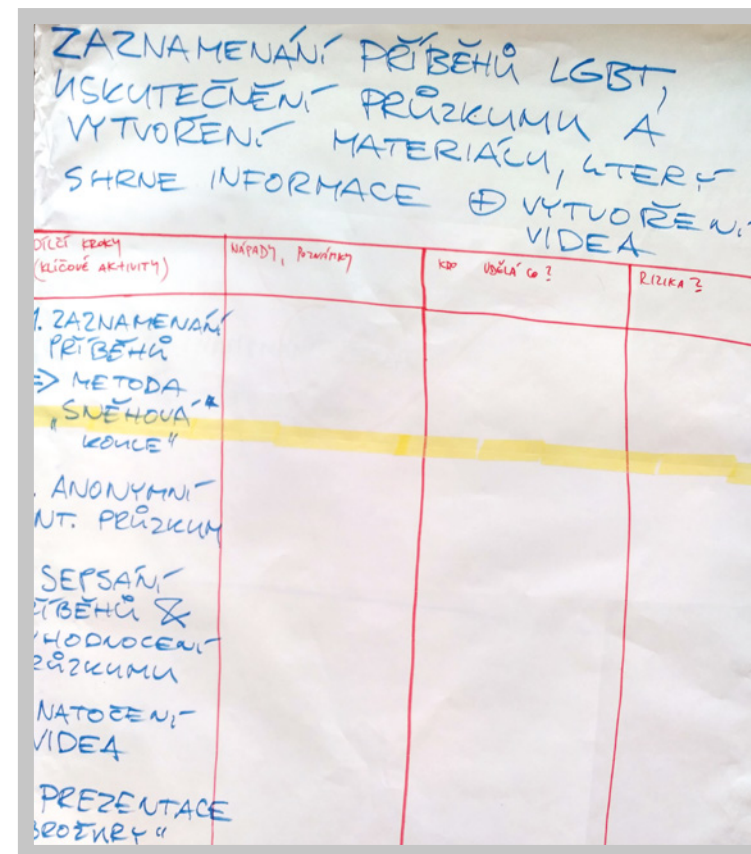 ZAZNAMENÁNÍ PŘÍBĚHŮ LGBT,
USKUTEČNĚNÍ PRŮZKUMU A
VYTVOŘENÍ MATERIÁLU, KTERÝ
SHRNE INFORMACE ⊕ VYTVOŘENÍ
VIDEA
DÍLČÍ KROKY
(KLÍČOVÉ AKTIVITY)
NÁPADY, POZNÁMKY
KDO UDĚLÁ CO?
RIZIKA?
1. ZAZNAMENÁNÍ
PŘÍBĚHŮ
=> METODA
"SNĚHOVÁ*
KOULE"
. ANONYMNÍ
NT. PRŮZKUM
SEPSÁNÍ
ŘÍBĚHŮ &
YHODNOCENÍ
RŮZKUMU
NATOČENÍ
VIDEA
PREZENTACE
BROŽURY"